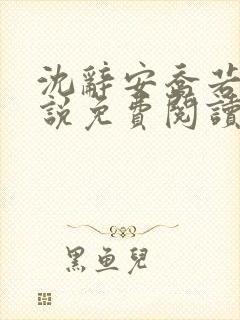 沈辭安喬若
說免費閱讀
黑魚兒